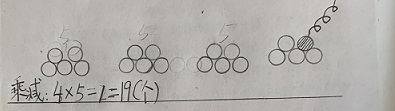 5 5 5
乘减:4×5=1=19(个)